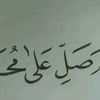 وَصَلِّ عَلىٰ مُحَ